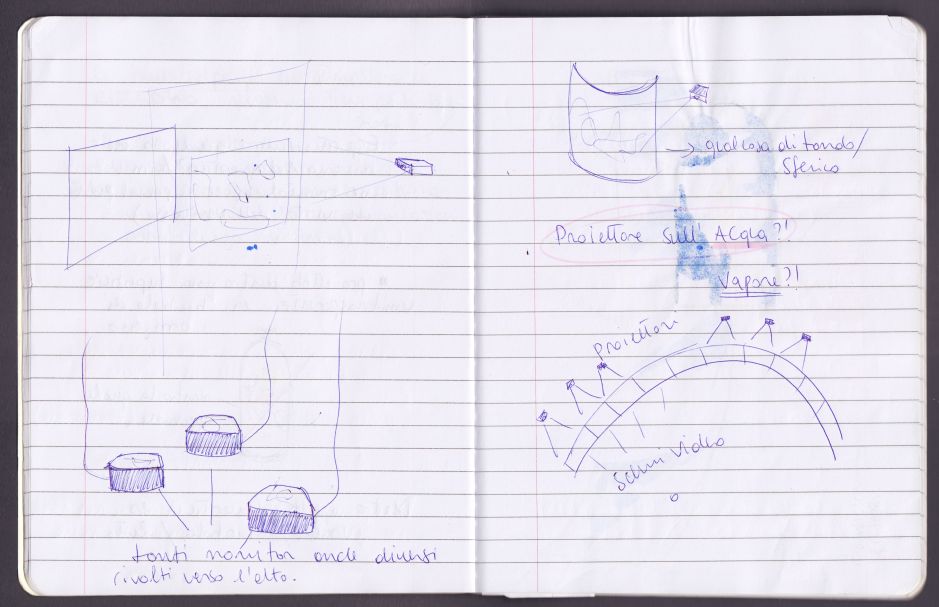 tanti monitor anche diversi
rivolti verso l'alto.
→ qualcosa di tondo/
Sferico
Proiettore sull Acqua?!
Vapore?!
Proiettori
Schermi Video